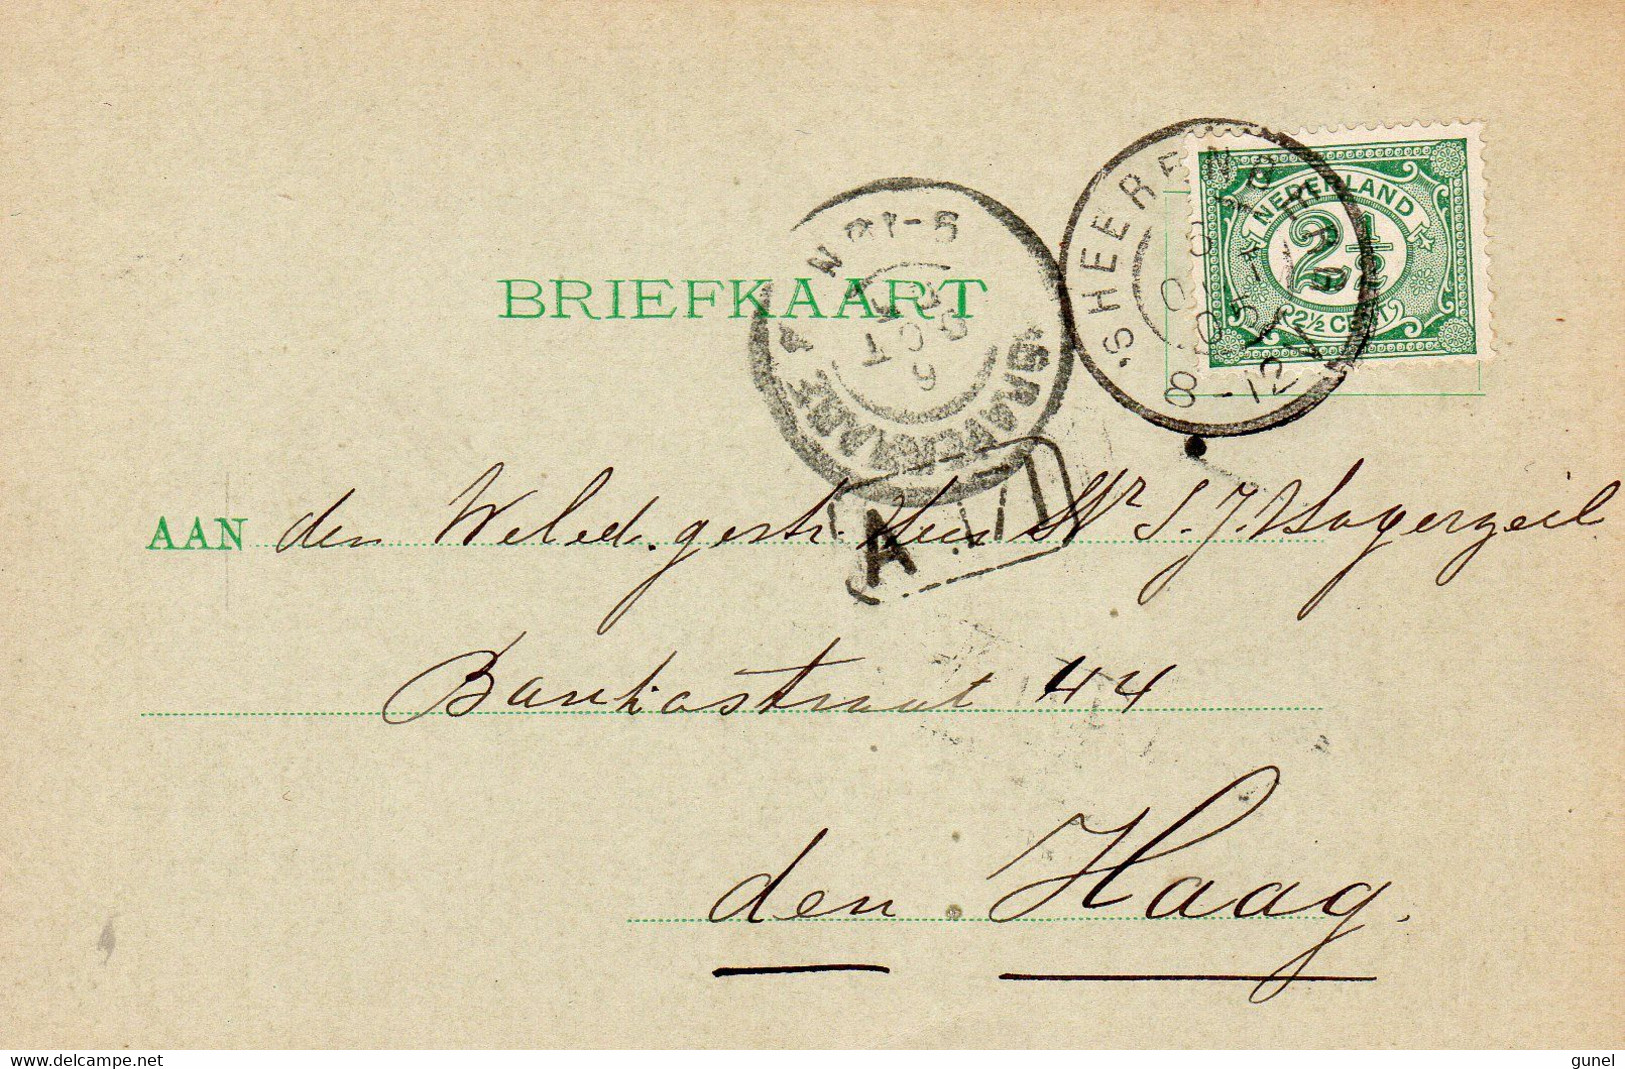 BRIEFKAART
NEDERLAND
2½
2½ CENT
'SHEERENBERG
8-12V
'SGRAVENHAGE
9-10 N
6 OCT 05
A
AAN den Weled.gestr. Heer Mr S. J. Hogerzeil
Bankastraat 44
den Haag.
delcampe.net
gunel